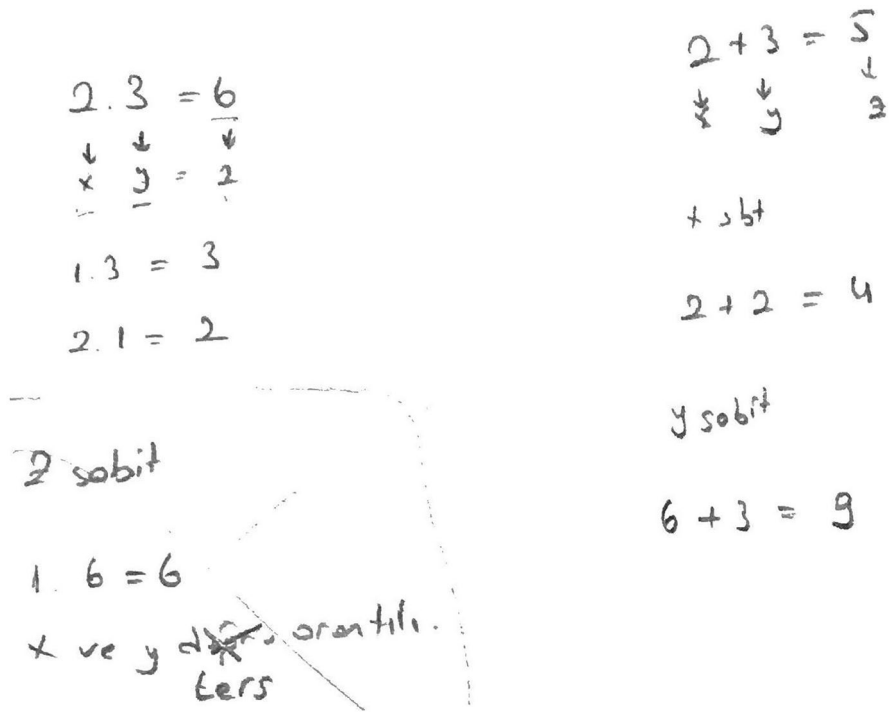 2 . 3 = 6
↓ ↓ ↓
x y = z
1 . 3 = 3
2 . 1 = 2
z sabit
1 . 6 = 6
x ve y orantılı.
ters
2 + 3 = 5
↓ ↓ ↓
x y z
x sbt
2 + 2 = 4
y sabit
6 + 3 = 9